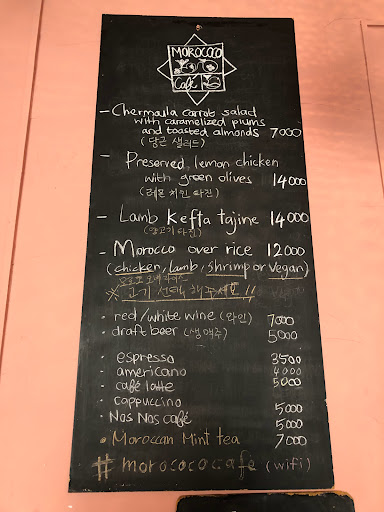 MOROCCO
Café
- Chermoula carrot salad
with caramelized plums
and toasted almonds 7000
(당근 샐러드)
- Preserved lemon chicken
with green olives 14000
(레몬 치킨 타진)
- Lamb Kefta tajine 14000
(양고기 타진)
- Morocco over rice 12000
(chicken, lamb, shrimp or vegan)
모로코 오버 라이스
※ 고기 선택 해주세요!!
· red/white wine (와인) 7000
· draft beer (생맥주) 5000
· espresso 3500
· americano 4000
· café latte 5000
· cappuccino 5000
· Nos Nos café 5000
· Moroccan Mint tea 7000
# morocococafe (wifi)